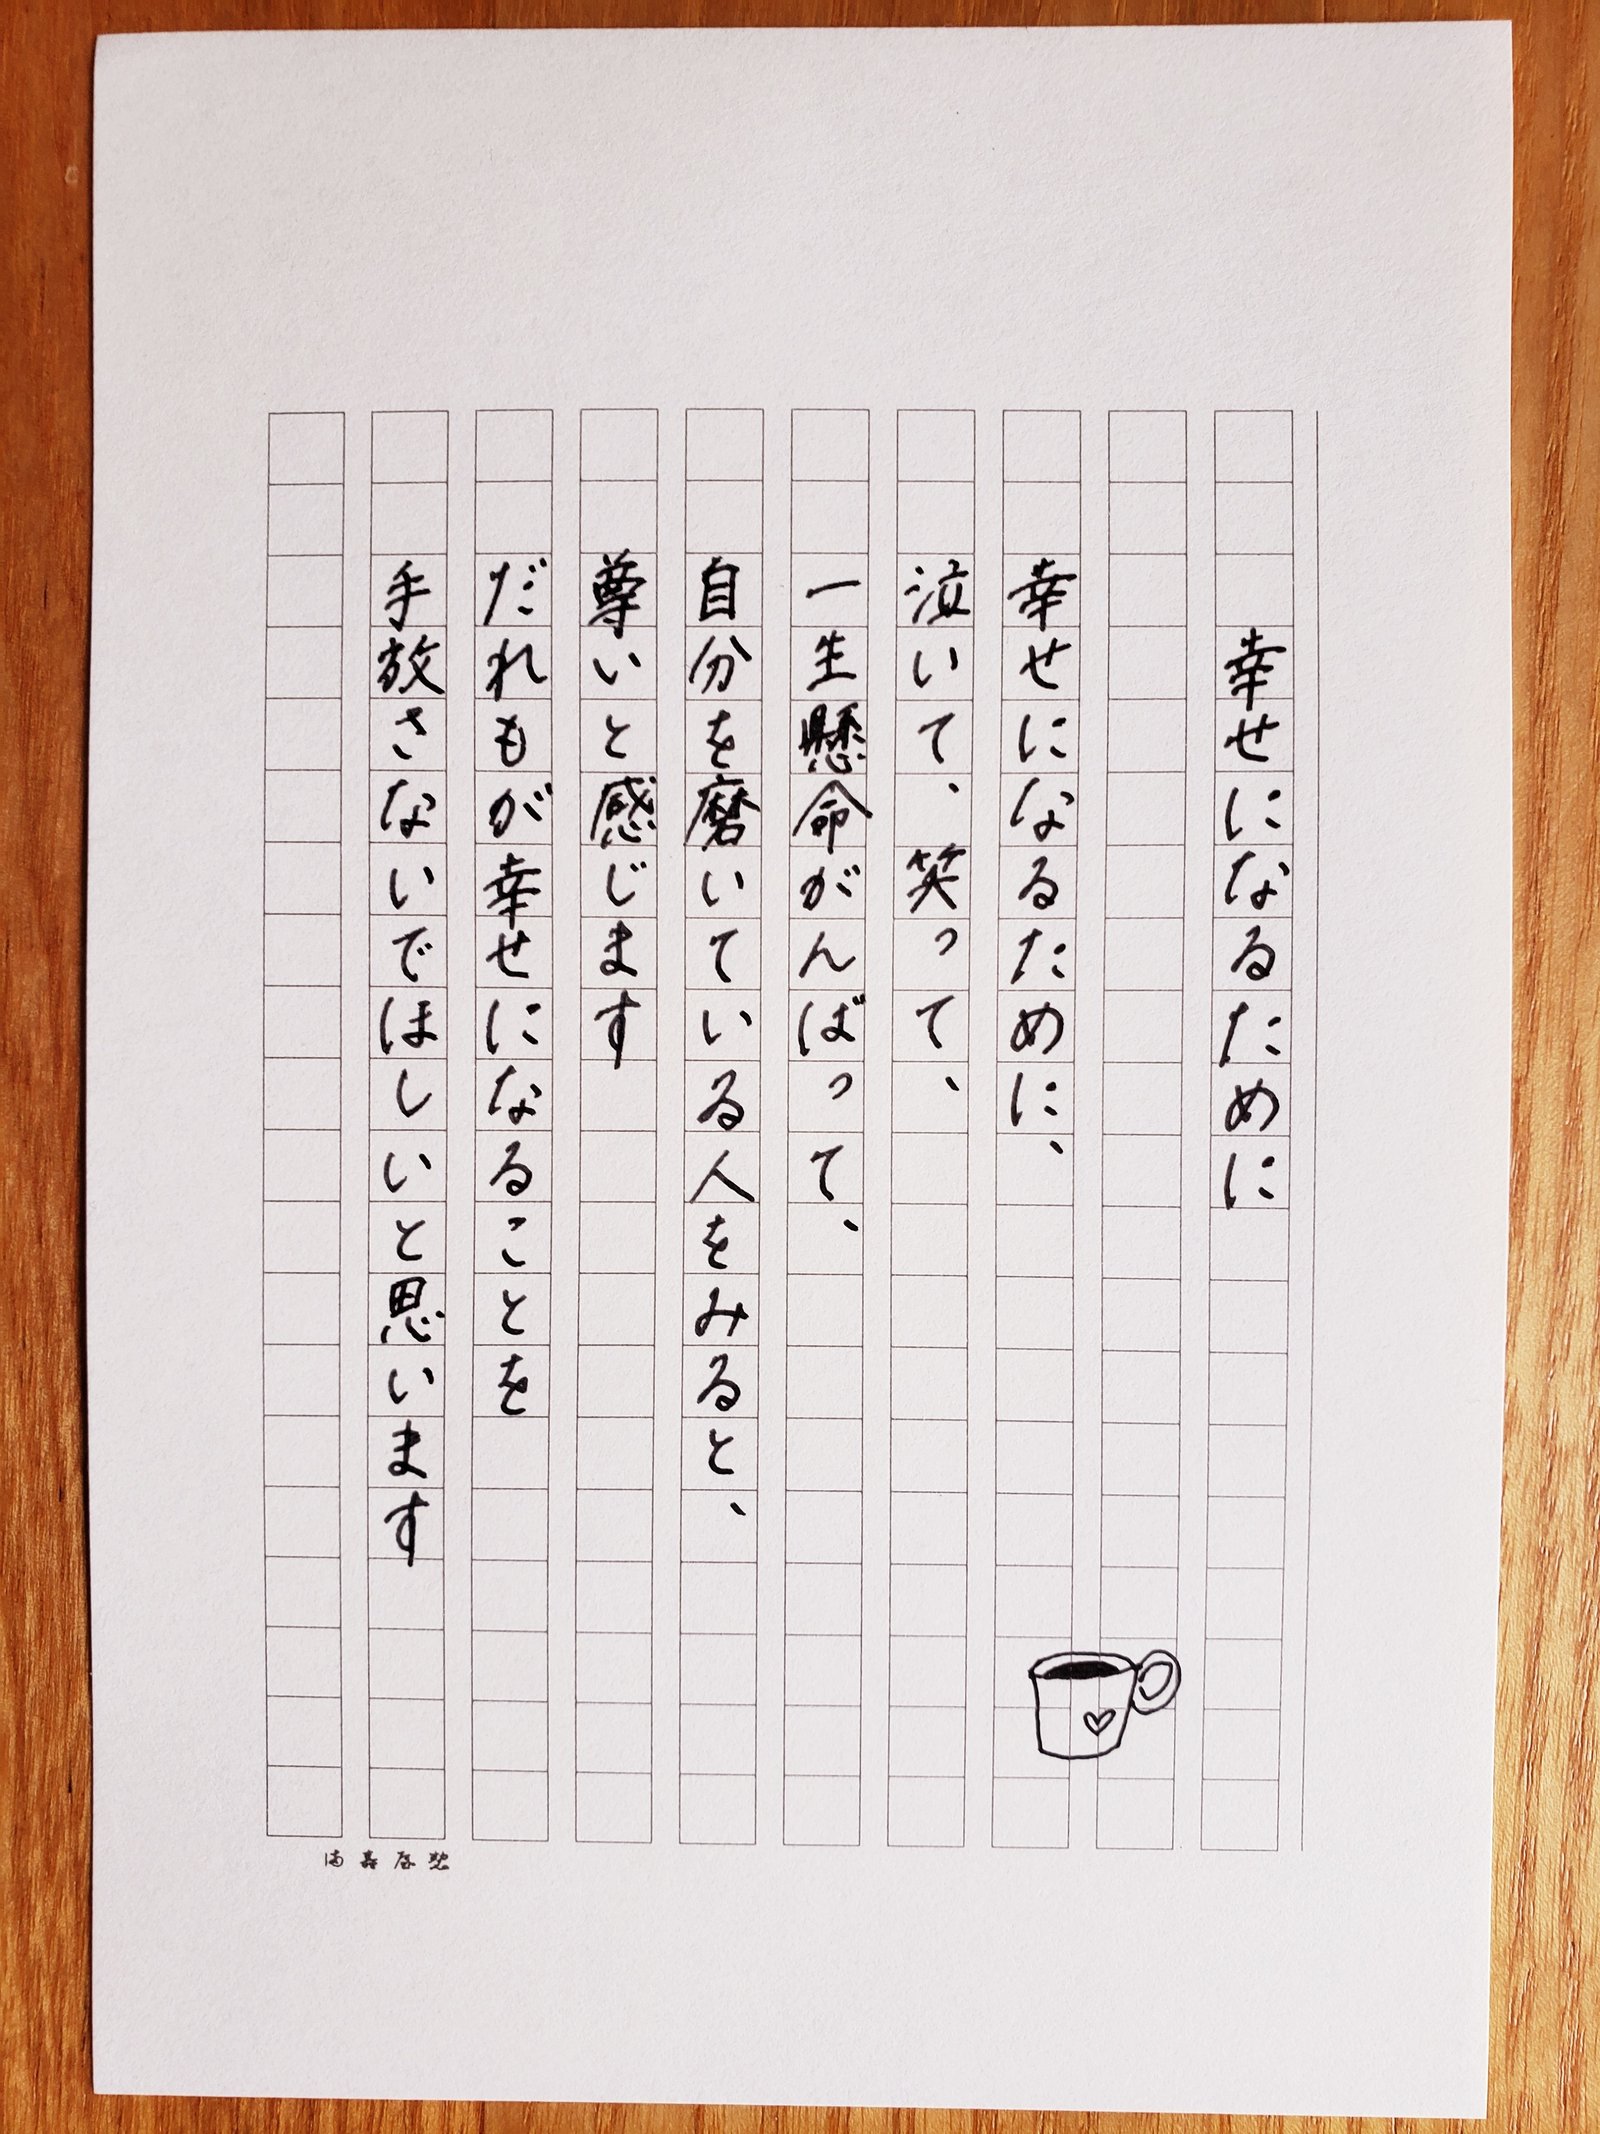 幸せになるために
幸せになるために、
泣いて、笑って、
一生懸命がんばって、
自分を磨いている人をみると、
尊いと感じます
だれもが幸せになることを
手放さないでほしいと思います